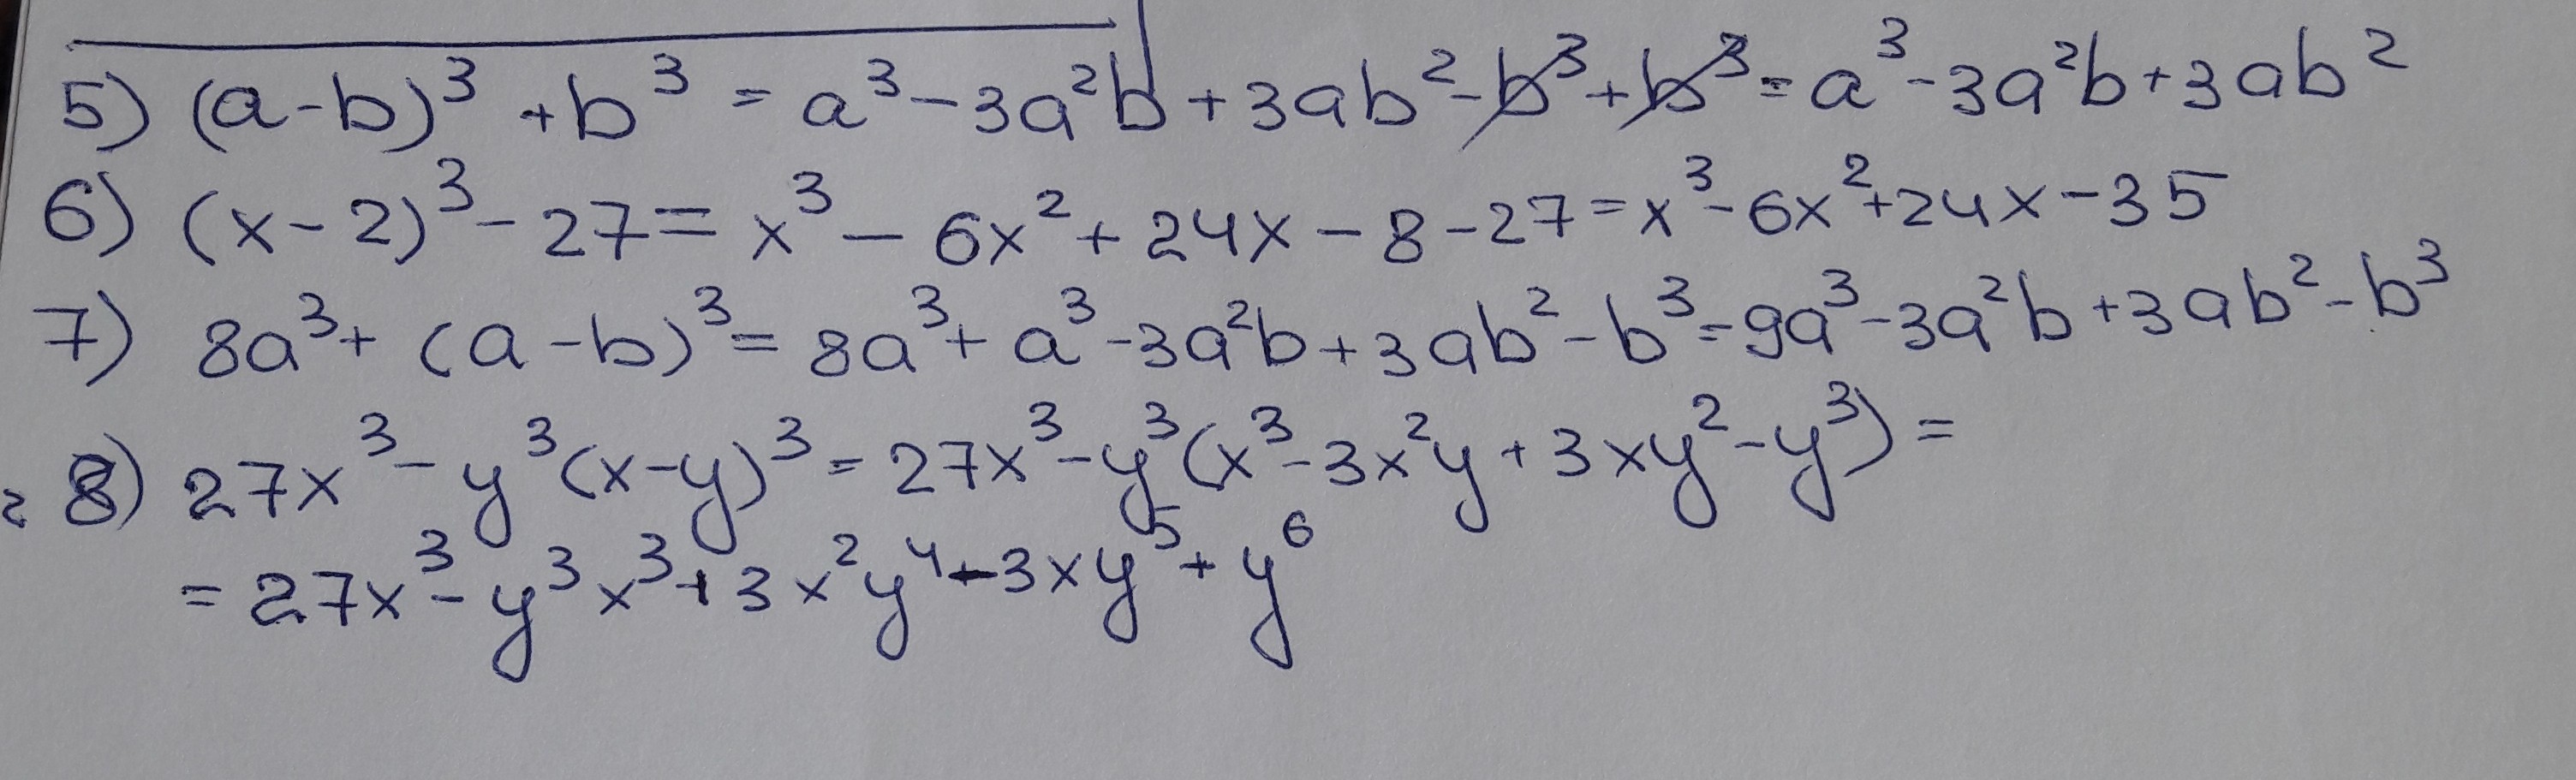 5) (a-b)³ + b³ = a³ - 3a²b + 3ab² - b³ + b³ = a³ - 3a²b + 3ab²
6) (x-2)³ - 27 = x³ - 6x² + 24x - 8 - 27 = x³ - 6x² + 24x - 35
7) 8a³ + (a-b)³ = 8a³ + a³ - 3a²b + 3ab² - b³ = 9a³ - 3a²b + 3ab² - b³
8) 27x³ - y³(x-y)³ = 27x³ - y³(x³ - 3x²y + 3xy² - y³) =
= 27x³ - y³x³ + 3x²y⁴ - 3xy⁵ + y⁶